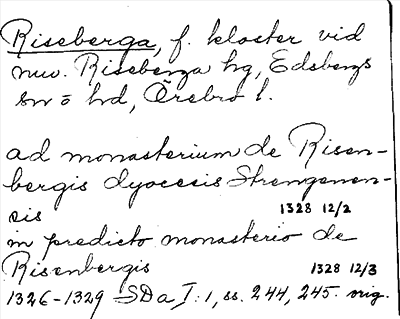 Riseberga, f. kloster vid
nuv. Riseberga hg, Edsbergs
sn o hd, Örebro l.
ad monasterium de Risen-
bergis dyocesis Strengenen-
sis 1328 12/2
in predicto monasterio de
Risenbergis 1328 12/3
1326-1329 SDa I: 1, ss. 244, 245. orig.